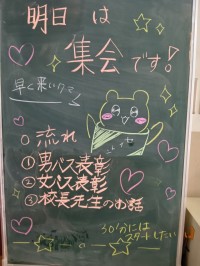 明日は
集会です!
早く来いクマ
○流れ
①男バス表彰
②女バス表彰
③校長先生のお話
30分には
スタートしたい